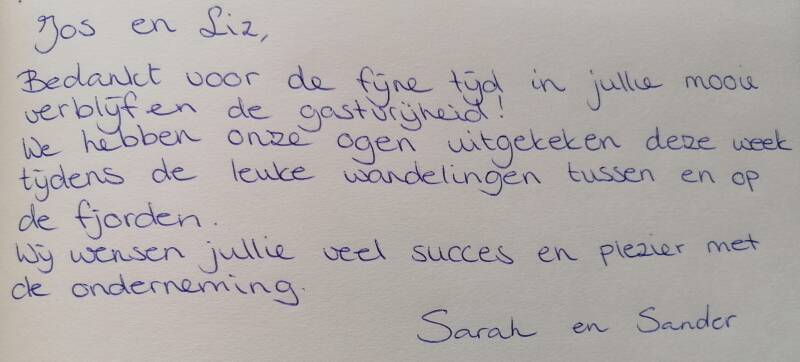 Jos en Liz,
Bedankt voor de fijne tijd in jullie mooie
verblijf en de gastvrijheid!
We hebben onze ogen uitgekeken deze week
tijdens de leuke wandelingen tussen en op
de fjorden.
Wij wensen jullie veel succes en plezier met
de onderneming.
Sarah en Sander